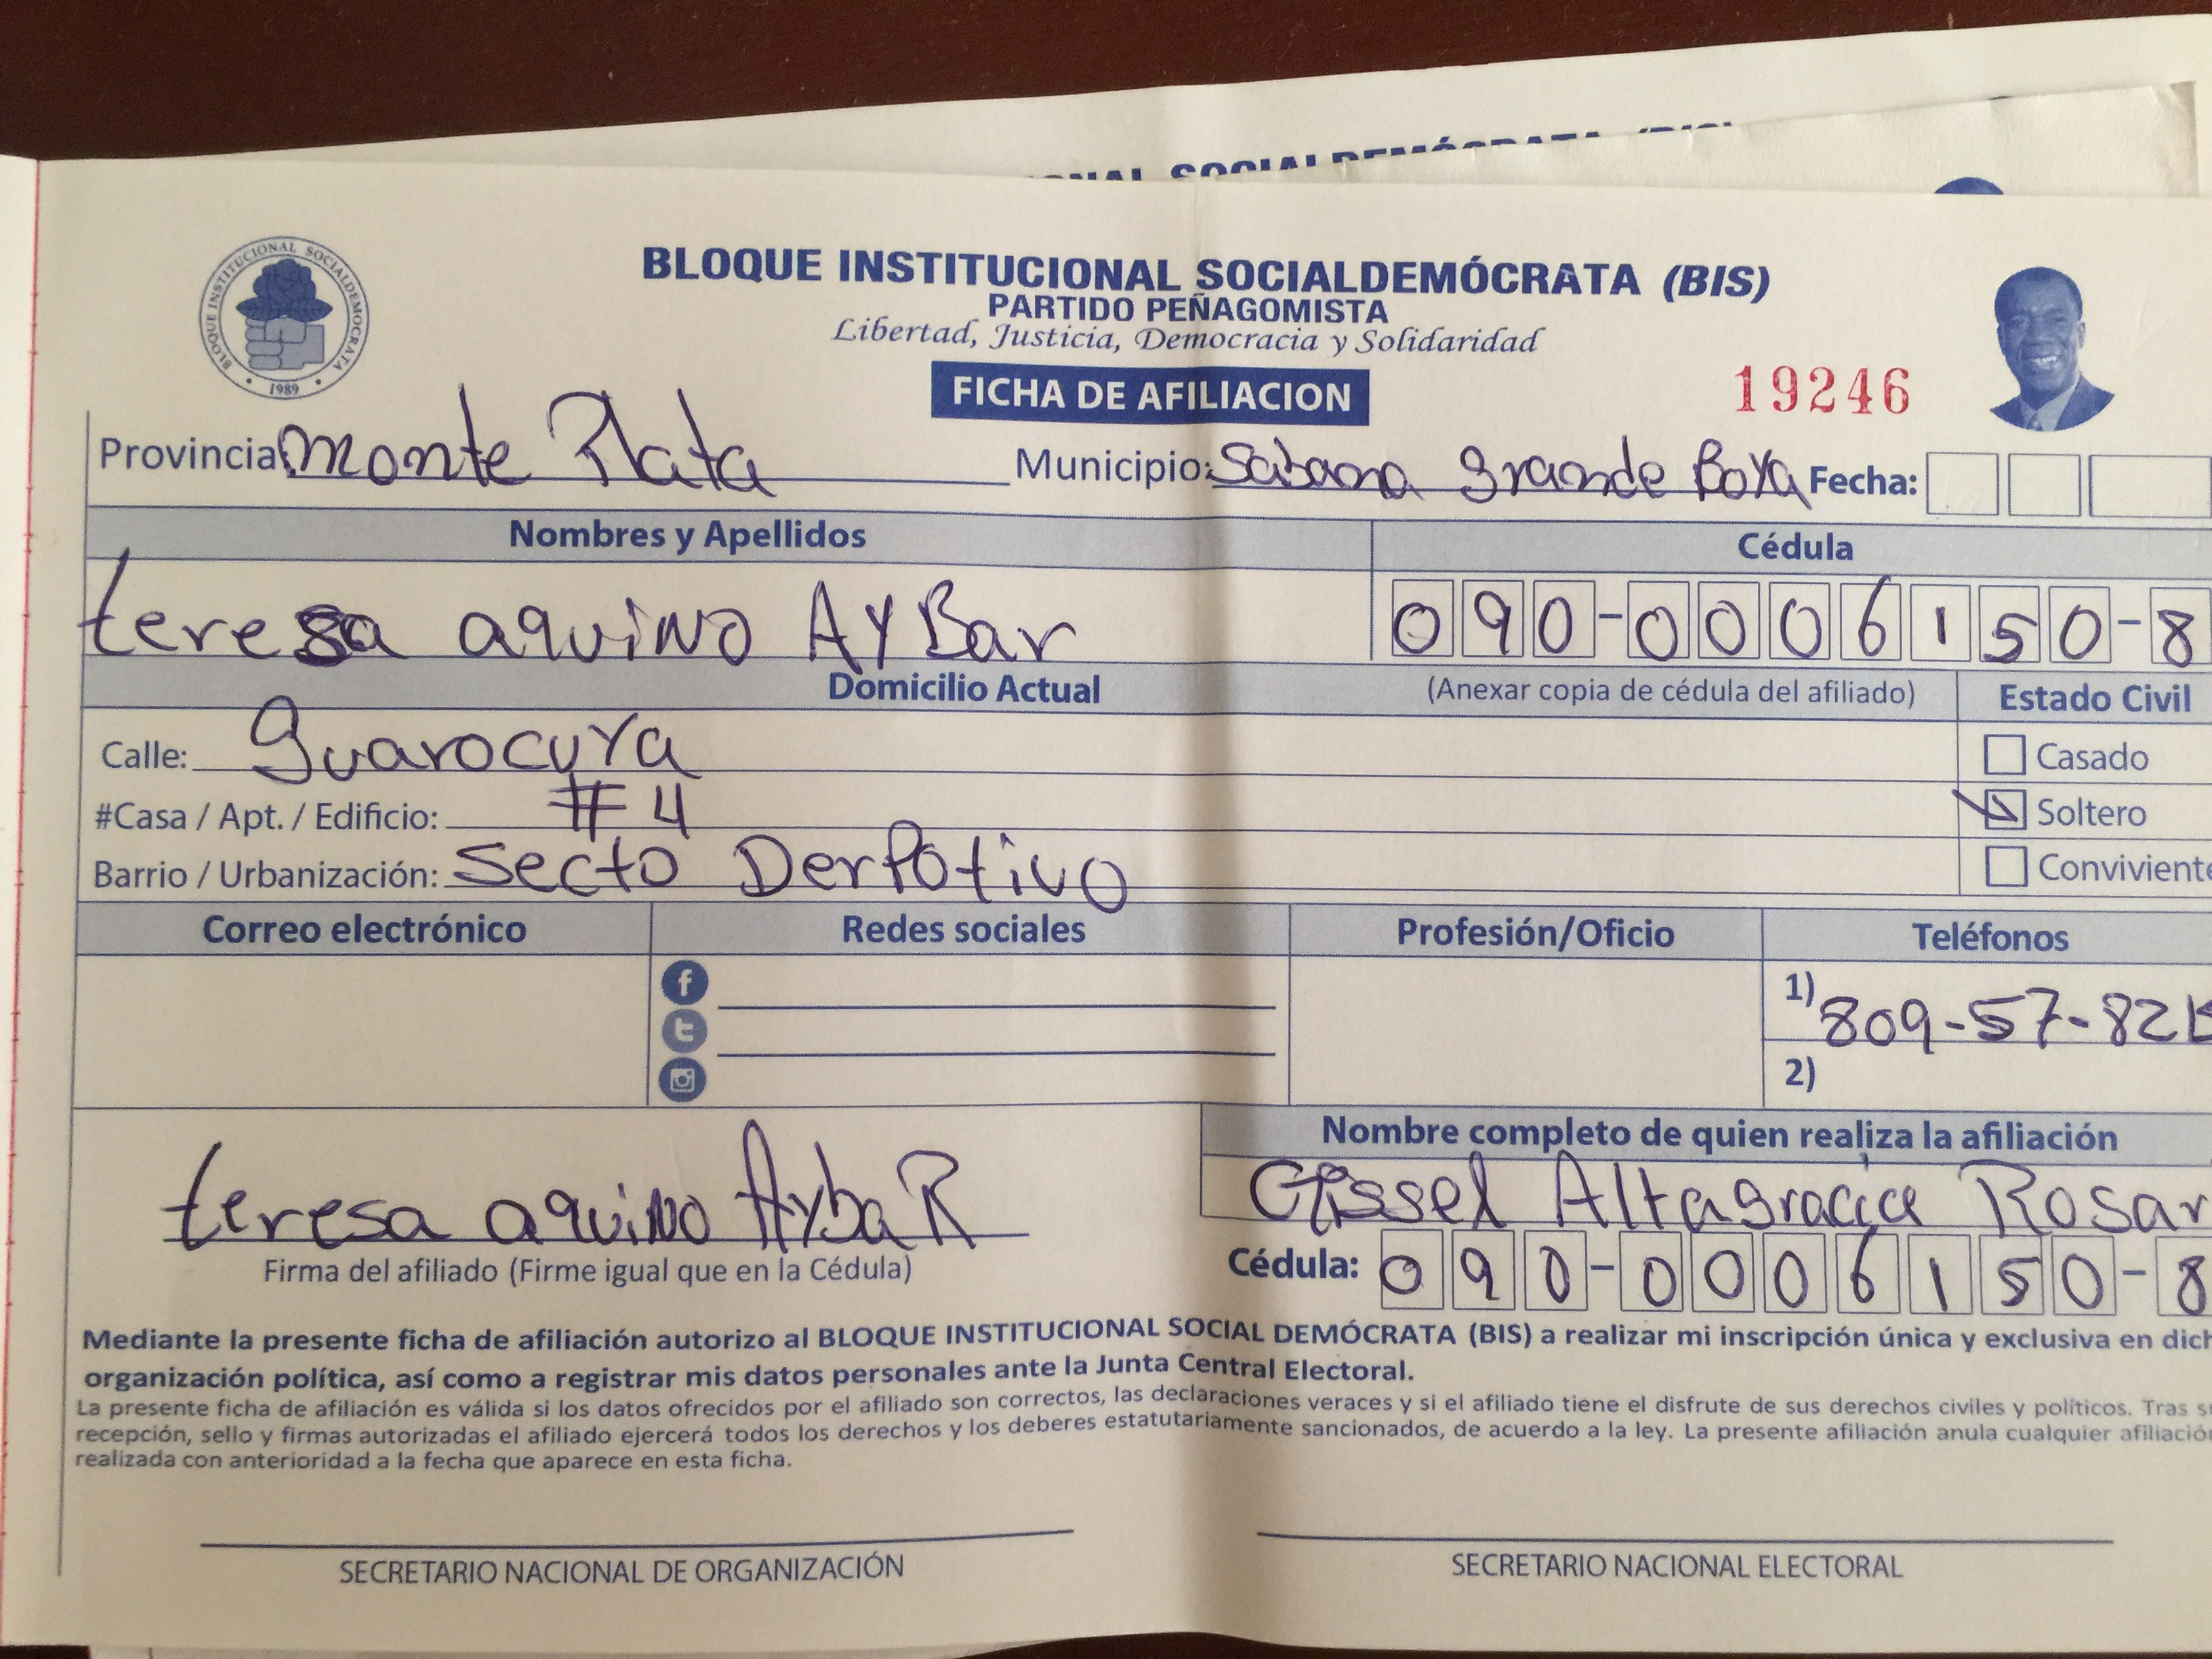 BLOQUE INSTITUCIONAL SOCIALDEMÓCRATA
1989
BLOQUE INSTITUCIONAL SOCIALDEMÓCRATA (BIS)
PARTIDO PEÑAGOMISTA
Libertad, Justicia, Democracia y Solidaridad
FICHA DE AFILIACION
19246
Provincia: Monte Plata Municipio: Sabana grande Boya Fecha:
Nombres y Apellidos Cédula
teresa aquino AyBar 090-0006150-8
Domicilio Actual (Anexar copia de cédula del afiliado) Estado Civil
Calle: guarocuya Casado
#Casa / Apt. / Edificio: #4 Soltero
Barrio / Urbanización: Secto Derpotivo Conviviente
Correo electrónico Redes sociales Profesión/Oficio Teléfonos
1) 809-57-82
2)
Nombre completo de quien realiza la afiliación
Gissel Altagracia Rosar
teresa aquino AybaR
Firma del afiliado (Firme igual que en la Cédula)
Cédula: 090-0006150-8
Mediante la presente ficha de afiliación autorizo al BLOQUE INSTITUCIONAL SOCIAL DEMÓCRATA (BIS) a realizar mi inscripción única y exclusiva en dich
organización política, así como a registrar mis datos personales ante la Junta Central Electoral.
La presente ficha de afiliación es válida si los datos ofrecidos por el afiliado son correctos, las declaraciones veraces y si el afiliado tiene el disfrute de sus derechos civiles y políticos. Tras su
recepción, sello y firmas autorizadas el afiliado ejercerá todos los derechos y los deberes estatutariamente sancionados, de acuerdo a la ley. La presente afiliación anula cualquier afiliación
realizada con anterioridad a la fecha que aparece en esta ficha.
SECRETARIO NACIONAL DE ORGANIZACIÓN SECRETARIO NACIONAL ELECTORAL